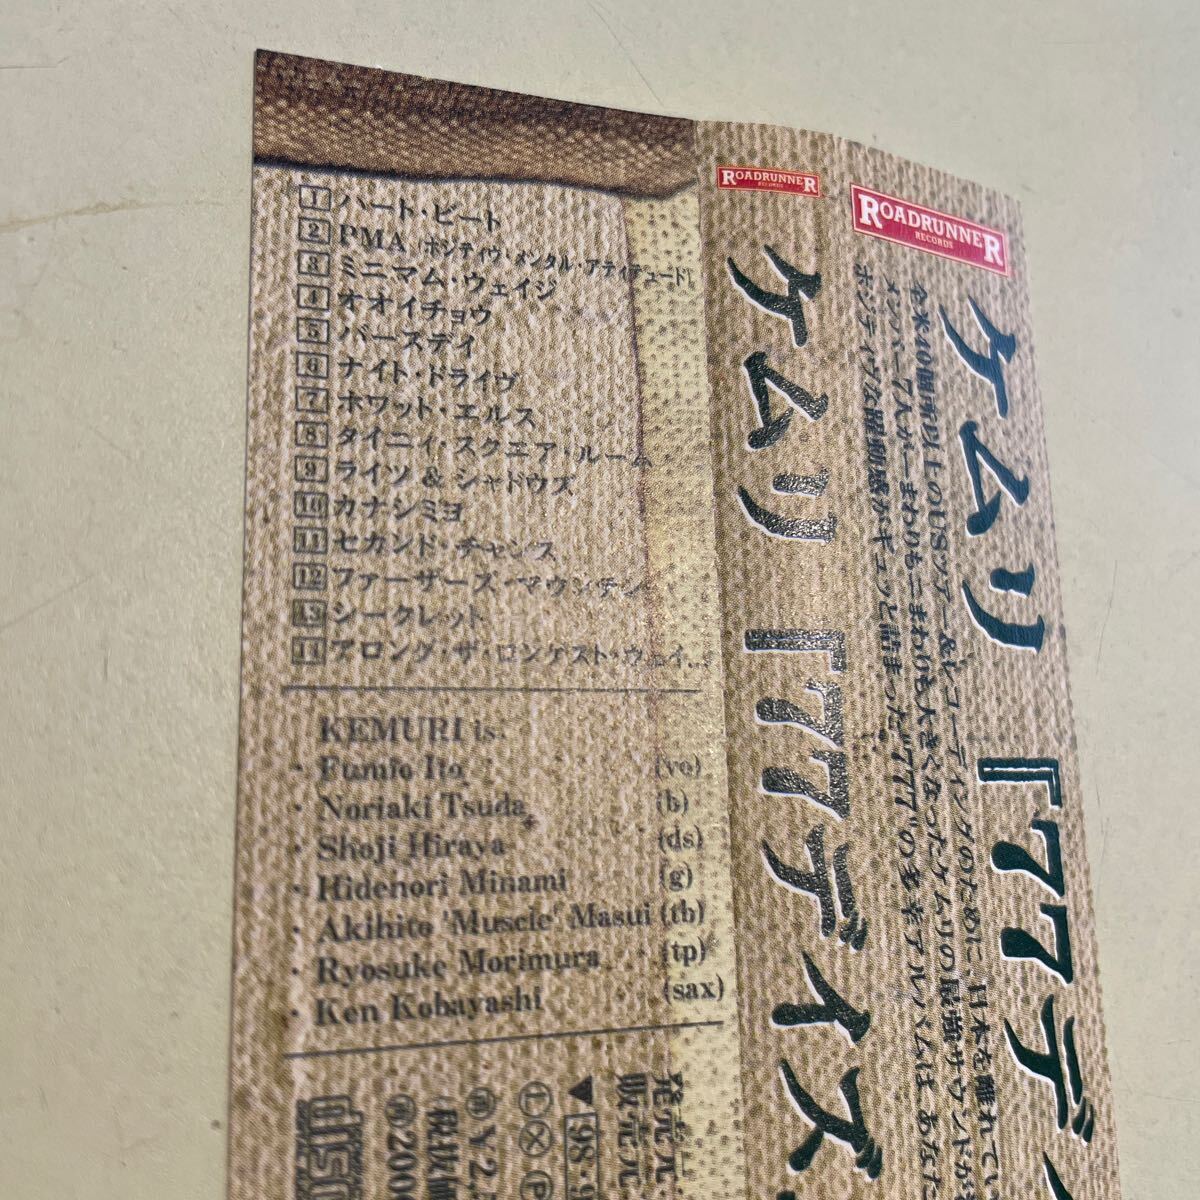 1 ハート・ビート
2 PMA (ポジティヴ・メンタル・アティテュード)
3 ミニマム・ウェイジ
4 オオイチョウ
5 バースディ
6 ナイト・ドライヴ
7 ホワット・エルス
8 タイニィ・スクエア・ルーム
9 ライツ & シャドウズ
10 カナシミヨ
11 セカンド・チャンス
12 ファーザーズ・マウンテン
13 シークレット
14 アロング・ザ・ロンゲスト・ウェイ...
KEMURI is:
・ Fumio Ito (vo)
・ Noriaki Tsuda (b)
・ Shoji Hiraya (ds)
・ Hidenori Minami (g)
・ Akihito 'Muscle' Masui (tb)
・ Ryosuke Morimura (tp)
・ Ken Kobayashi (sax)
発売元
販売元
▼98・9
ROADRUNNER
RECORDS
ケムリ『77デイズ
ROADRUNNER
RECORDS
ケムリ『77デイ
全米40個所以上のUSツアー&レコーディングのために、日本を離れて
メンバー7人が一まわりも二まわりも大きくなったケムリの最強サウンドが
ポジティヴな躍動感がギュッと詰まった"777"のニューアルバムはあなた